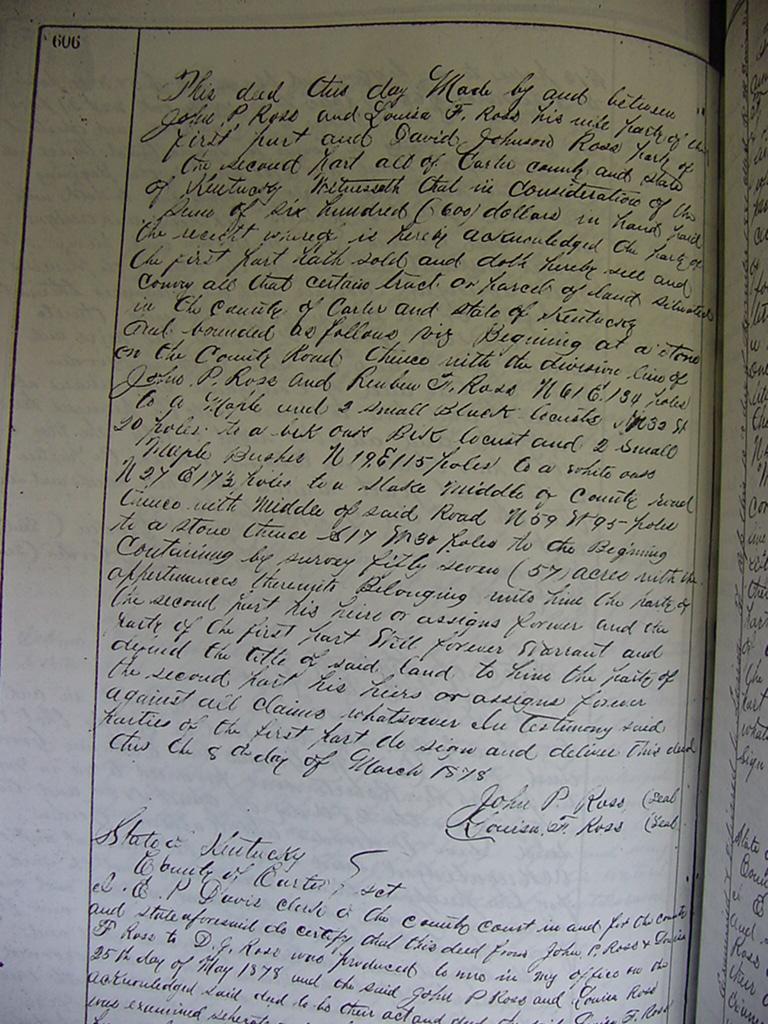 606
This deed this day Made by and between
John P Ross and Louisa F. Ross his wife party of the
first part and David Johnson Ross party of
the second part all of Carter county and state
of Kentucky Witnesseth that in Consideration of the
Sum of six hundred (600) dollars in hand paid
the receipt whereof is hereby acknowledged the party of
the first part hath sold and doth hereby sell and
convey all that certain tract or parcel of land situated
in the county of Carter and state of Kentucky
and bounded as follows viz Begining at a stone
on the County Road thence with the division line of
John P. Ross and Reuben F. Ross N 61 E 134 poles
to a Maple and 2 small Black locusts N 32 W
20 poles to a blk oak Blk locust and 2 small
Maple Bushes N 19 E 115 poles to a white oak
N 27 E 17½ poles to a Stake middle of County road
thence with Middle of said Road N 59 W 95 poles
to a stone thence S 17 W 30 poles to the Begining
Containing by survey fifty seven (57) acres with the
appertinances thereunto Belonging unto him the party of
the second part his heirs or assigns forever and the
party of the first part Will forever Warrant and
defend the title of said land to him the party of
the second part his heirs or assigns forever
against all claims whatsoever In Testimony said
parties of the first part do sign and deliver this deed
this the 8th day of March 1878
John P Ross (Seal
Louisa F. Ross (Seal
State of Kentucky
County of Carter } sct
I. E. P Davis clerk of the county court in and for the county
and state aforesaid do certify that this deed from John P. Ross & Louisa
F Ross to D. J. Ross was produced to me in my office on the
25th day of May 1878 and the said John P Ross and Louisa Ross
acknowledged said deed to be their act and deed the said Louisa F. Ross
was examined seperate